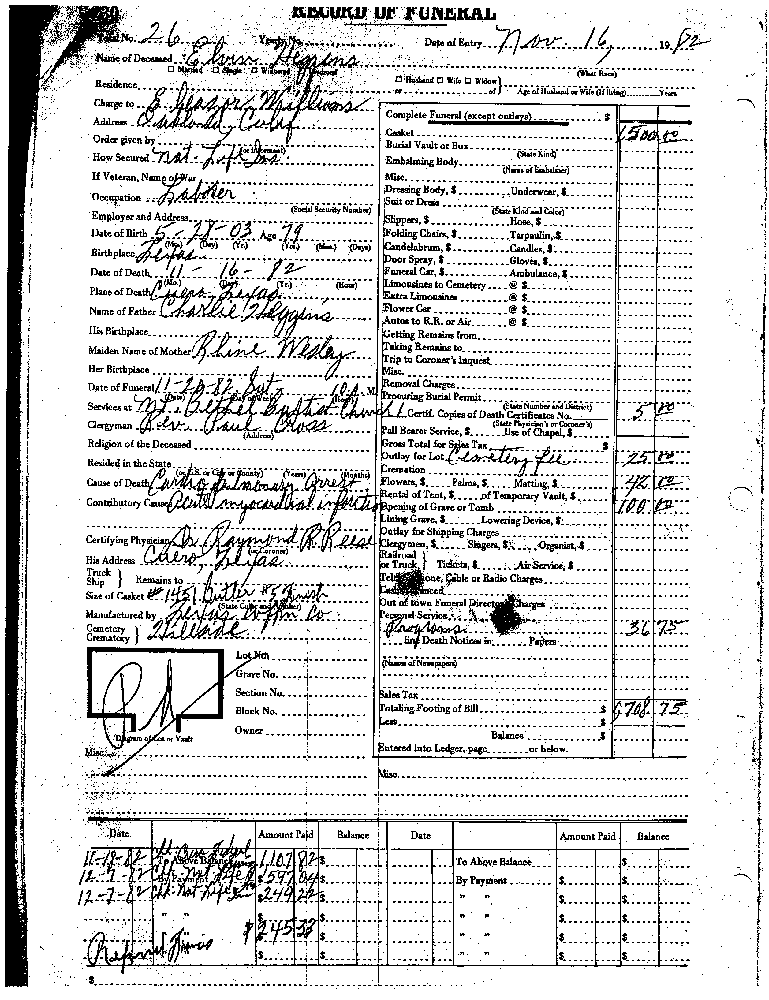 RECORD OF FUNERAL
Total No. 26 Yearly No. Date of Entry Nov. 16, 1982
Name of Deceased Elvin Higgins
☐ Married ☐ Single ☐ Widowed ☐ Divorced (What Race)
Residence ☐ Husband ☐ Wife ☐ Widow
or of Age of Husband or Wife (if living) Years
Charge to Williams
Address Calif
Order given by (or Informant)
How Secured Nat. Life Ins.
If Veteran, Name of War
Occupation Laborer
(Social Security Number)
Employer and Address
Date of Birth 5-28-03 Age 79
(Mo.) (Day) (Yr.) (Yrs.) (Mos.) (Days)
Birthplace Texas
Date of Death 11-16-82
(Mo.) (Day) (Yr.) (Hour)
Place of Death Cuero, Texas
Name of Father Charlie Higgins
His Birthplace
Maiden Name of Mother Rhine Wesley
Her Birthplace
Date of Funeral 11-20-82 Sat. 10 A. M.
(Date) (Day of Week) (Hour)
Services at Mt. Bethel Baptist Church
Clergyman Rev. Paul Cross
(Address)
Religion of the Deceased
Resided in the State
(or U.S. or City or County) (Years) (Months)
Cause of Death Cardio pulmonary arrest
Contributory Cause Acute myocardial infarction
Certifying Physician Dr. Raymond R. Reese
(or Coroner)
His Address Cuero, Texas
Truck
Ship } Remains to
Size of Casket # 1451 Butler #5 Finish
(State Color and Number)
Manufactured by Texas Coffin Co
Cemetery
Crematory } Hillside
Lot No.
Grave No.
Section No.
Block No.
Owner
Pd
Diagram of Lot or Vault
Misc.
Complete Funeral (except outlays) $
Casket 1500 00
Burial Vault or Box
(State Kind)
Embalming Body
(Name of Embalmer)
Misc.
Dressing Body, $ Underwear, $
Suit or Dress
(State Kind and Color)
Slippers, $ Hose, $
Folding Chairs, $ Tarpaulin, $
Candelabrum, $ Candles, $
Door Spray, $ Gloves, $
Funeral Car, $ Ambulance, $
Limousines to Cemetery @ $
Extra Limousines @ $
Flower Car @ $
Autos to R.R. or Air @ $
Getting Remains from
Taking Remains to
Trip to Coroner's Inquest
Misc.
Removal Charges
Procuring Burial Permit
(State Number and District)
1 Certif. Copies of Death Certificates No. 5 00
(State Physician's or Coroner's)
Pall Bearer Service, $ Use of Chapel, $
Gross Total for Sales Tax $
Outlay for Lot Cemetery fee 25 00
Cremation
Flowers, $ Palms, $ Matting, $ 42 00
Rental of Tent, $ of Temporary Vault, $
Opening of Grave or Tomb 100 00
Lining Grave, $ Lowering Device, $
Outlay for Shipping Charges
Clergymen, $ Singers, $ Organist, $
Railroad
or Truck } Tickets, $ Air Service, $
Telephone, Cable or Radio Charges
Cash Advanced
Out of town Funeral Director Charges
Personal Service
Programs 36 75
Death Notices in Papers
(Names of Newspapers)
Sales Tax
Totaling Footing of Bill $ 1,708 75
Less $
Balance $
Entered into Ledger, page or below.
Misc.
Date Amount Paid Balance Date Amount Paid Balance
11-18-82 To Above Balance 1,107 82 $ To Above Balance $
12-7-82 By Payment Nat. Life $ 597 04 $ By Payment $ $
12-7-82 Chk. Nat. Life Ins $ 249 22 $ " " $ $
" " $ " " $ $
$ 245 33 $ " " $ $
$ $ " " $ $
$